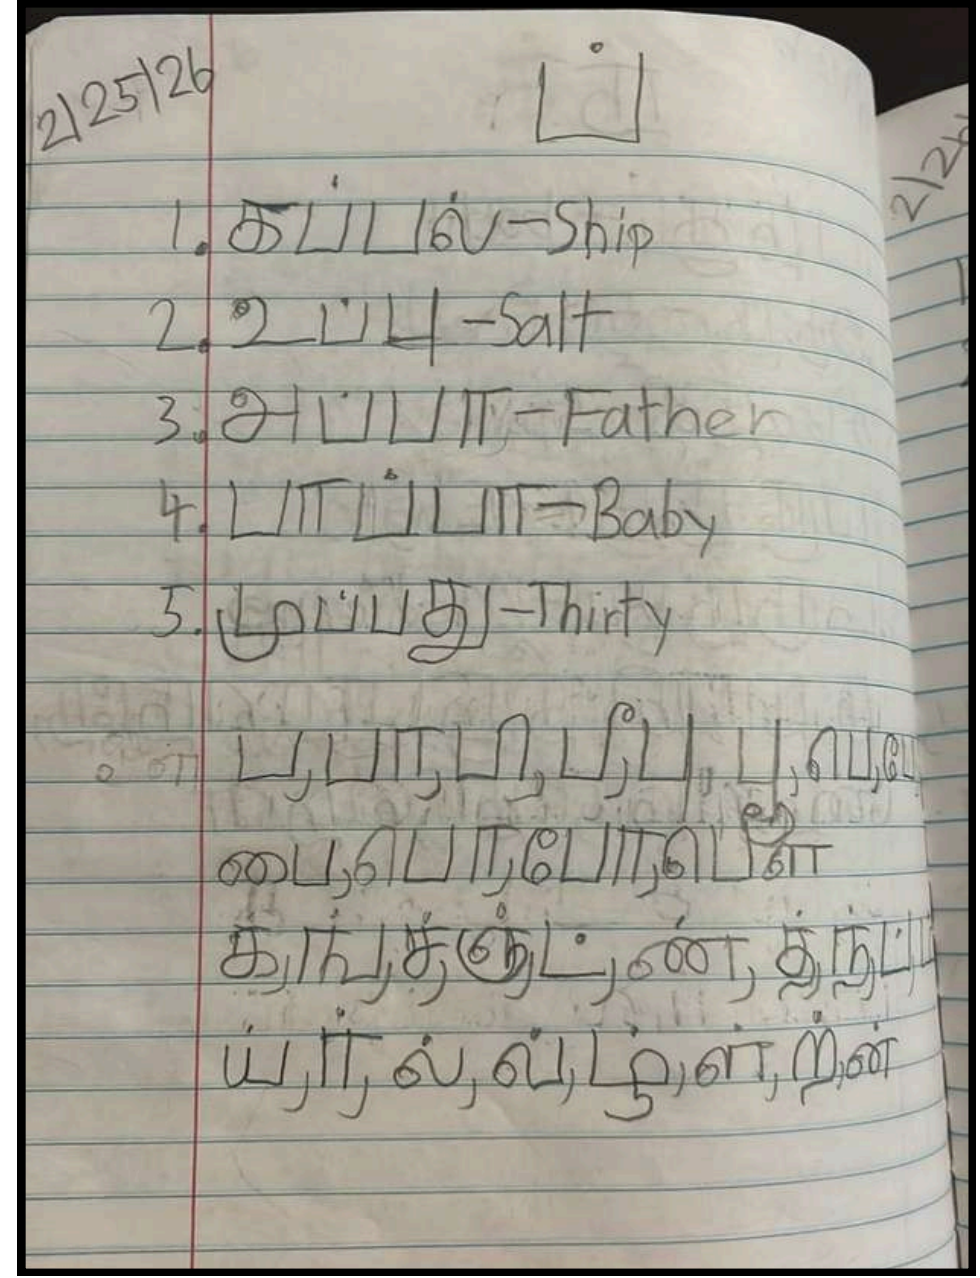 2/25/26
ப்
1. கப்பல் - Ship
2. உப்பு - Salt
3. அப்பா - Father
4. பாப்பா - Baby
5. முப்பது - Thirty
ப, பா, பி, பீ, பு, பூ, பெ, பே,
பை, பொ, போ, பௌ
க், ங், ச், ஞ், ட், ண், த், ந், ப்
ய், ர், ல், வ், ழ், ள், ற், ன்